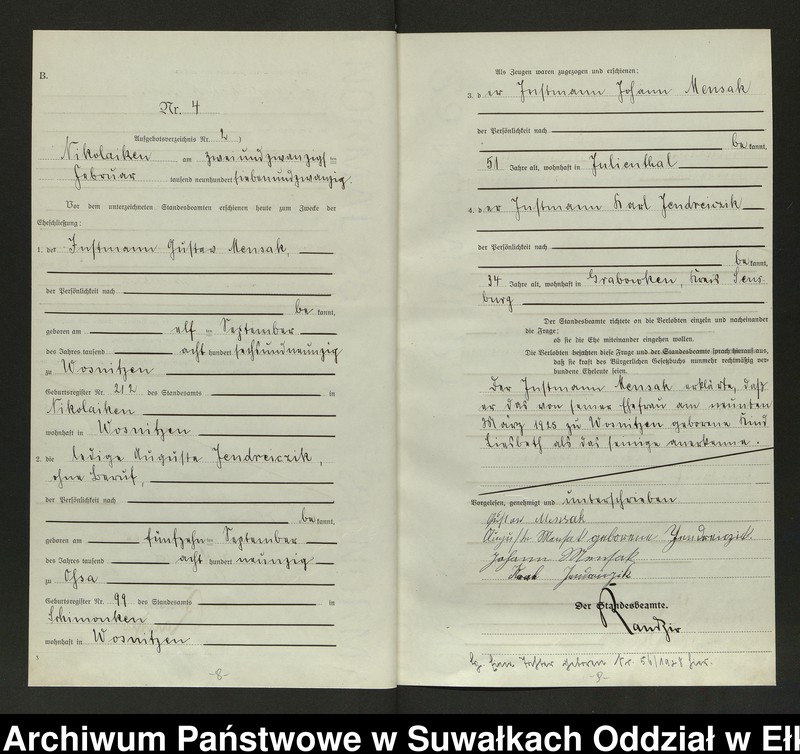 B.
Nr. 4
Aufgebotsverzeichnis Nr. 2
Nikolaiken am zweiundzwanzigsten
Februar tausend neunhundert siebenundzwanzig.
Vor dem unterzeichneten Standesbeamten erschienen heute zum Zwecke der
Eheschließung:
1. der Instmann Gustav Mensak,
der Persönlichkeit nach
be kannt,
geboren am elf ten September
des Jahres tausend acht hundert sechsundneunzig
zu Wosnitzen
Geburtsregister Nr. 212 des Standesamts in
Nikolaiken
wohnhaft in Wosnitzen
2. die ledige Auguste Jendreiczik,
ohne Beruf,
der Persönlichkeit nach
be kannt,
geboren am fünfzehn ten September
des Jahres tausend acht hundert neunzig
zu Chsa
Geburtsregister Nr. 99 des Standesamts in
Schimonken
wohnhaft in Wosnitzen
-8-
Als Zeugen waren zugezogen und erschienen:
3. der Instmann Johann Mensak
der Persönlichkeit nach
be kannt,
51 Jahre alt, wohnhaft in Julienthal
4. der Instmann Karl Jendreiczik
der Persönlichkeit nach
be kannt,
34 Jahre alt, wohnhaft in Grabowken, Kreis Sens-
burg
Der Standesbeamte richtete an die Verlobten einzeln und nacheinander
die Frage:
ob sie die Ehe miteinander eingehen wollen.
Die Verlobten bejahten diese Frage und der Standesbeamte sprach hierauf aus,
daß sie kraft des Bürgerlichen Gesetzbuchs nunmehr rechtmäßig ver-
bundene Eheleute seien.
Der Instmann Mensak erklärte, daß
er das von seiner Ehefrau am neunten
März 1925 zu Wosnitzen geborene Kind
Liesbeth als das seinige anerkenne.
Vorgelesen, genehmigt und unterschrieben
Gustav Mensak
Auguste Mensak geborene Jendreiczik.
Johann Mensak
Karl Jendreiczik
Der Standesbeamte.
Kandzir
Tochter geboren Nr. 56/1928 hier.
-8-
Archiwum Państwowe w Suwałkach Oddział w Eł